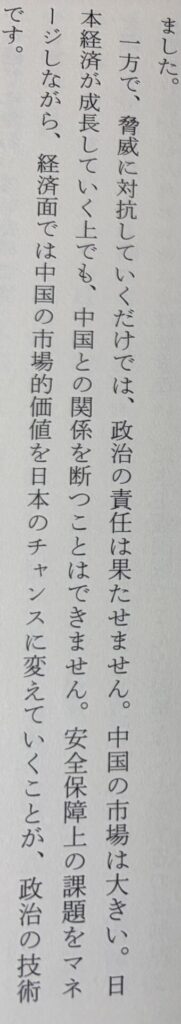 ました。
一方で、脅威に対抗していくだけでは、政治の責任は果たせません。中国の市場は大きい。日
本経済が成長していく上でも、中国との関係を断つことはできません。安全保障上の課題をマネ
ージしながら、経済面では中国の市場的価値を日本のチャンスに変えていくことが、政治の技術
です。